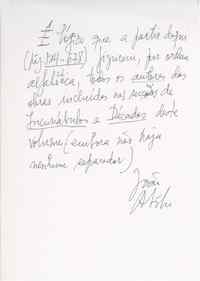 É lógico que a partir daqui
(pág 574-678) figuram, por ordem
alfabética, todos os autores das
obras incluídas nas secções de
Incunábulos e Décadas deste
volume (embora não haja
nenhum separador)
João